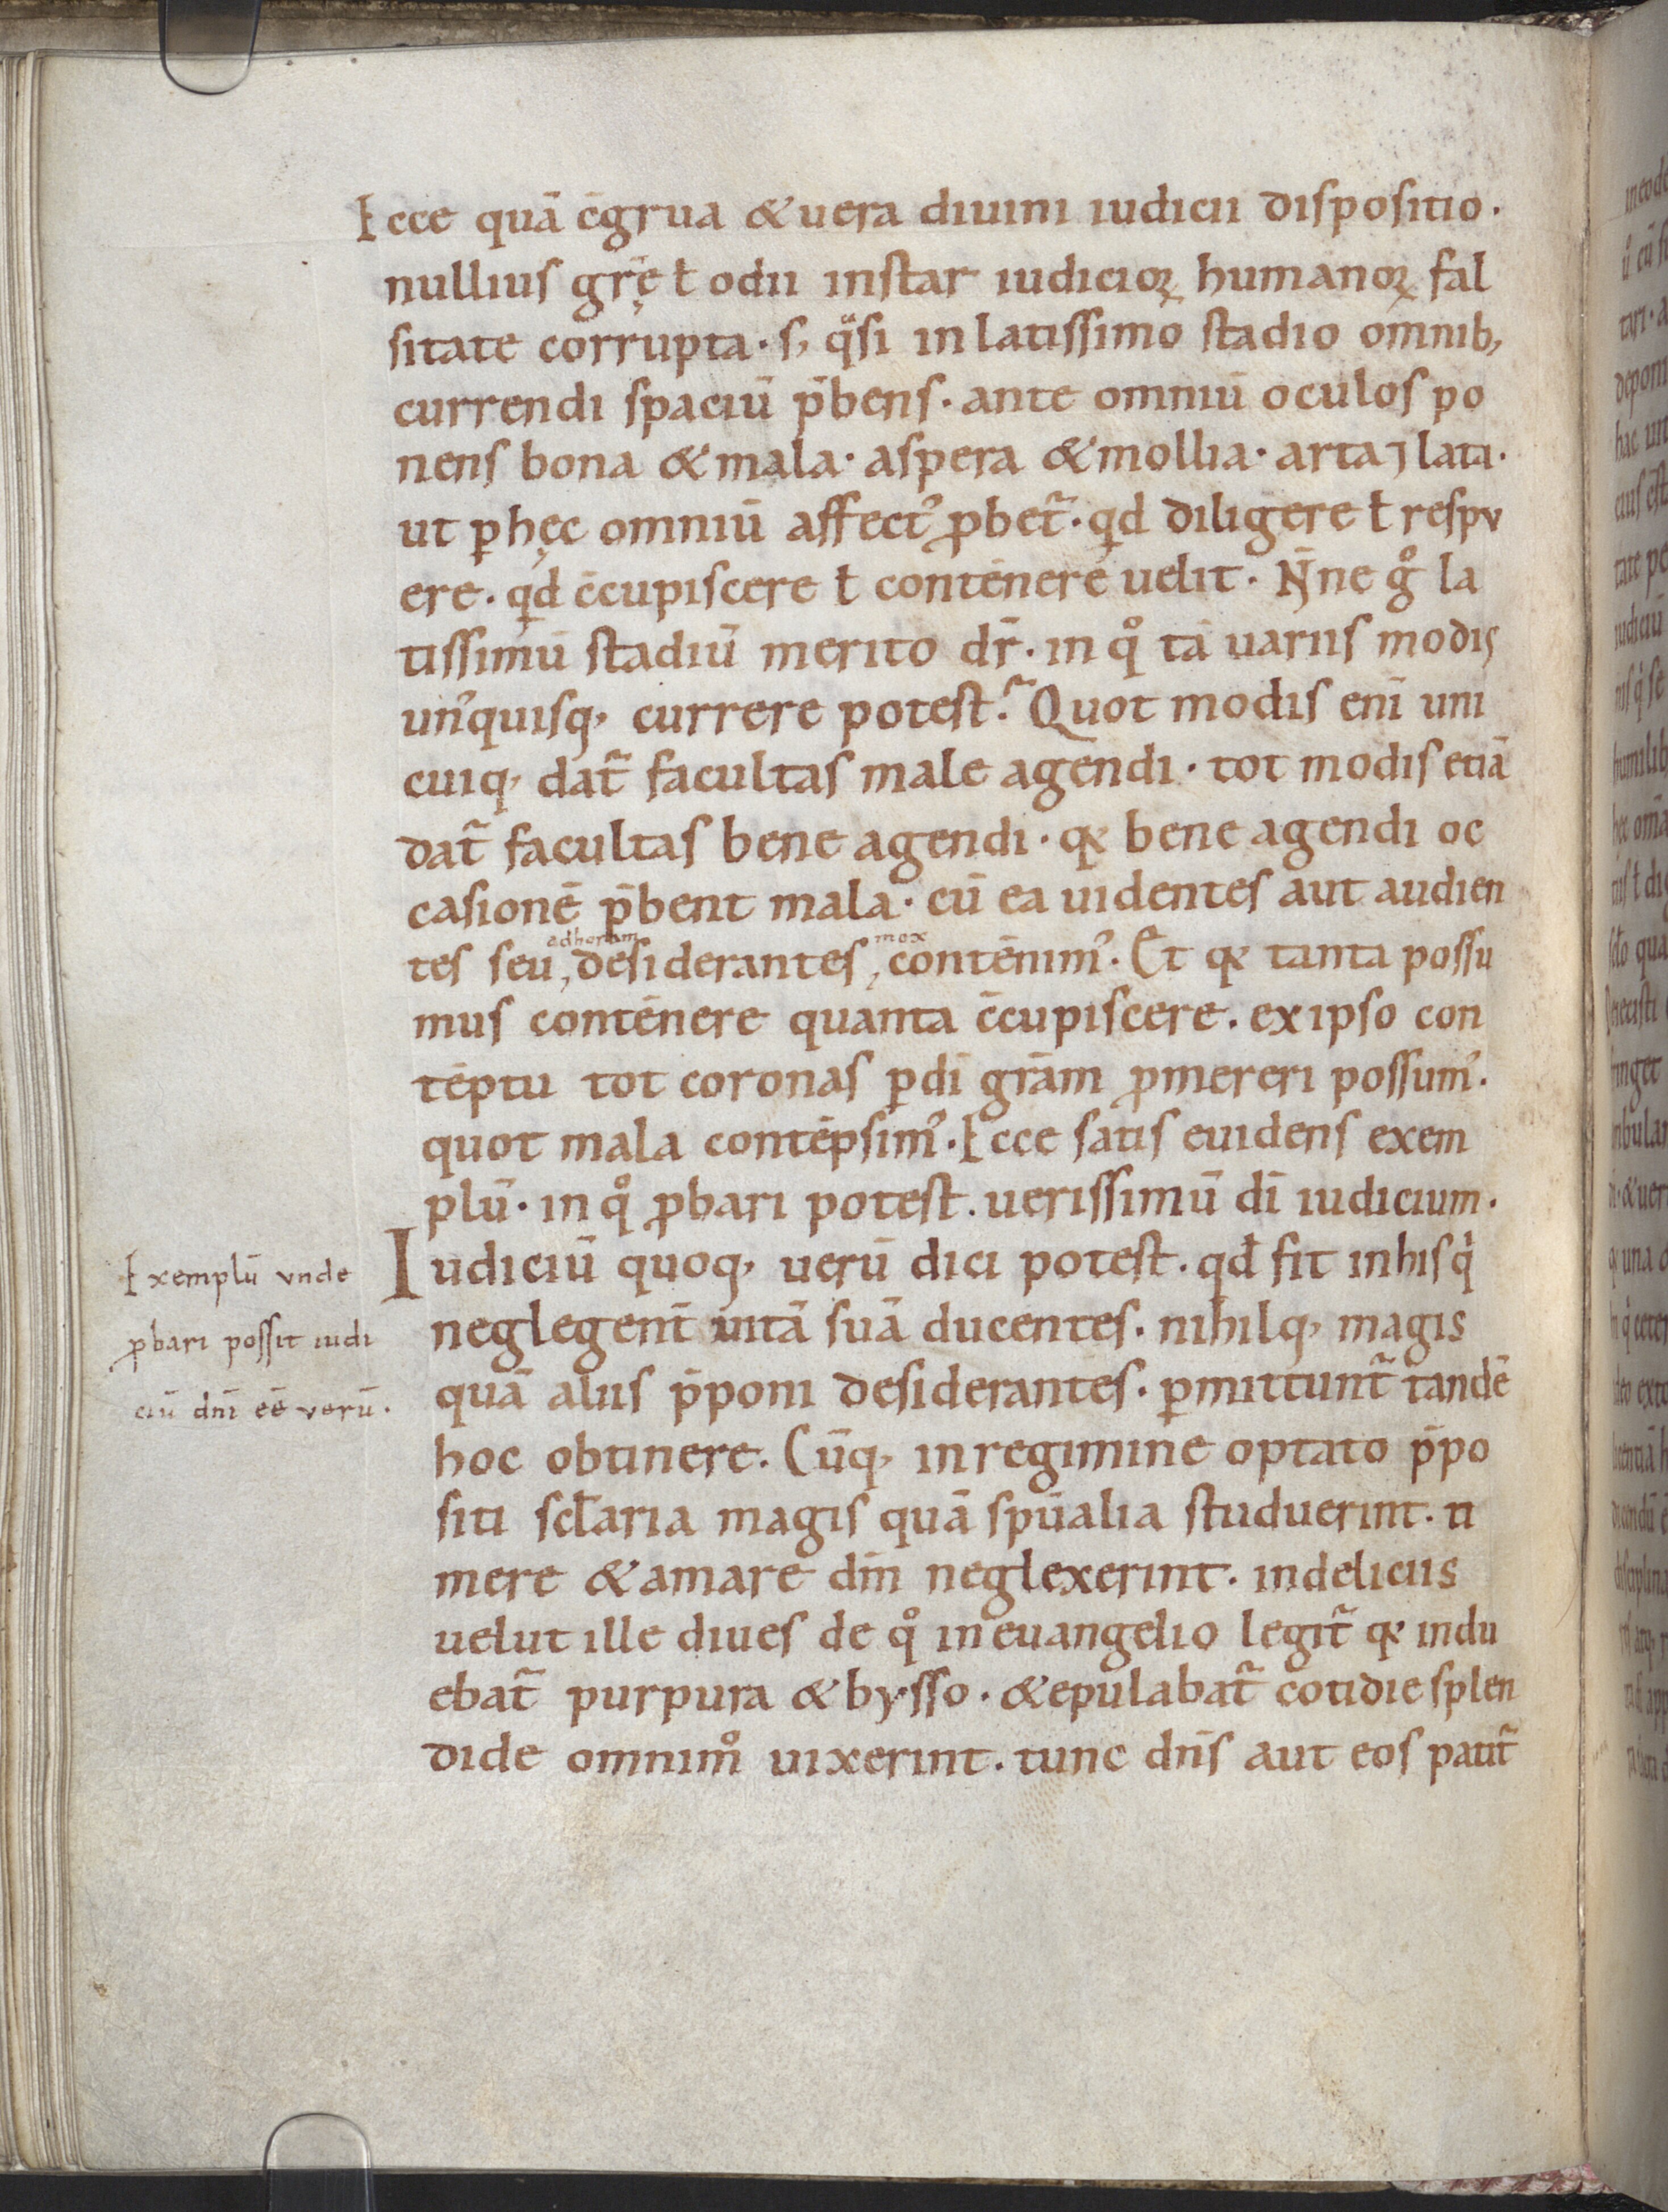 Ecce quā c̄grua & uera diuini iudicii dispositio.
nullius gr̄ę ł odii instar iudicioꝝ humanoꝝ fal
sitate corrupta. s; qͣsi in latissimo stadio omnib;
currendi spaciū p̄bens. ante omniū oculos po
nens bona & mala. aspera & mollia. arta ⁊ lata.
ut ꝑ hęc omniū affectꝰ ꝓbet̃. qd diligere ł respu
ere. qd c̄cupiscere ł contēnere uelit. N̄ne gͦ la
tissimū stadiū merito dr̄. in qͦ tā uariis modis
unꝰquisq; currere potest? Quot modis eni̅ uni
cuiq; dat̃ facultas male agendi. tot modis etiā
dat̃ facultas bene agendi. qꝫ bene agendi oc
casionē p̄bent mala. cū ea uidentes aut audien
tes seu, adhoram desiderantes, mox contēnimꝰ. Et qꝫ tanta possu
mus contēnere quanta c̄cupiscere. ex ipso con
tēptu tot coronas ꝑ di̅ gr̄am ꝓmereri possumꝰ.
quot mala contēpsimꝰ. Ecce satis euidens exem
plū. in qͦ ꝓbari potest. uerissimū di̅ iudicium.
Iudiciū quoq; uerū dici potest. qđ fit in his qͥ
neglegent̄ uitā suā ducentes. nihilq; magis
quā aliis p̄poni desiderantes. ꝑmittunt̃ tandē
hoc obtinere. Cūq; in regimine optato p̄po
siti scłaria magis quā sp̄ualia studuerint. ti
mere & amare dn̄m neglexerint. in deliciis
uelut ille diues de qͦ in euangelio legit̃ qꝫ indu
ebat̃ purpura & bysso. & epulabat̃ cotidie splen
dide omnimͦ uixerint. tunc dn̄s aut eos patit̃
Exemplū vnde
ꝓbari possit iudi
ciū dn̄i eē verū.